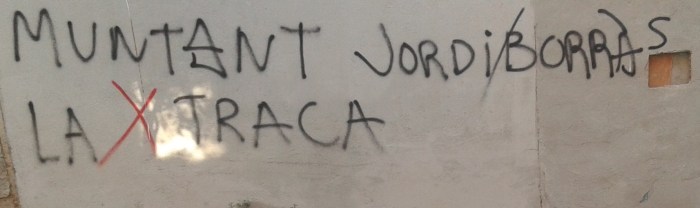 MUNTANT JORDI BORRÀS
LA X TRACA